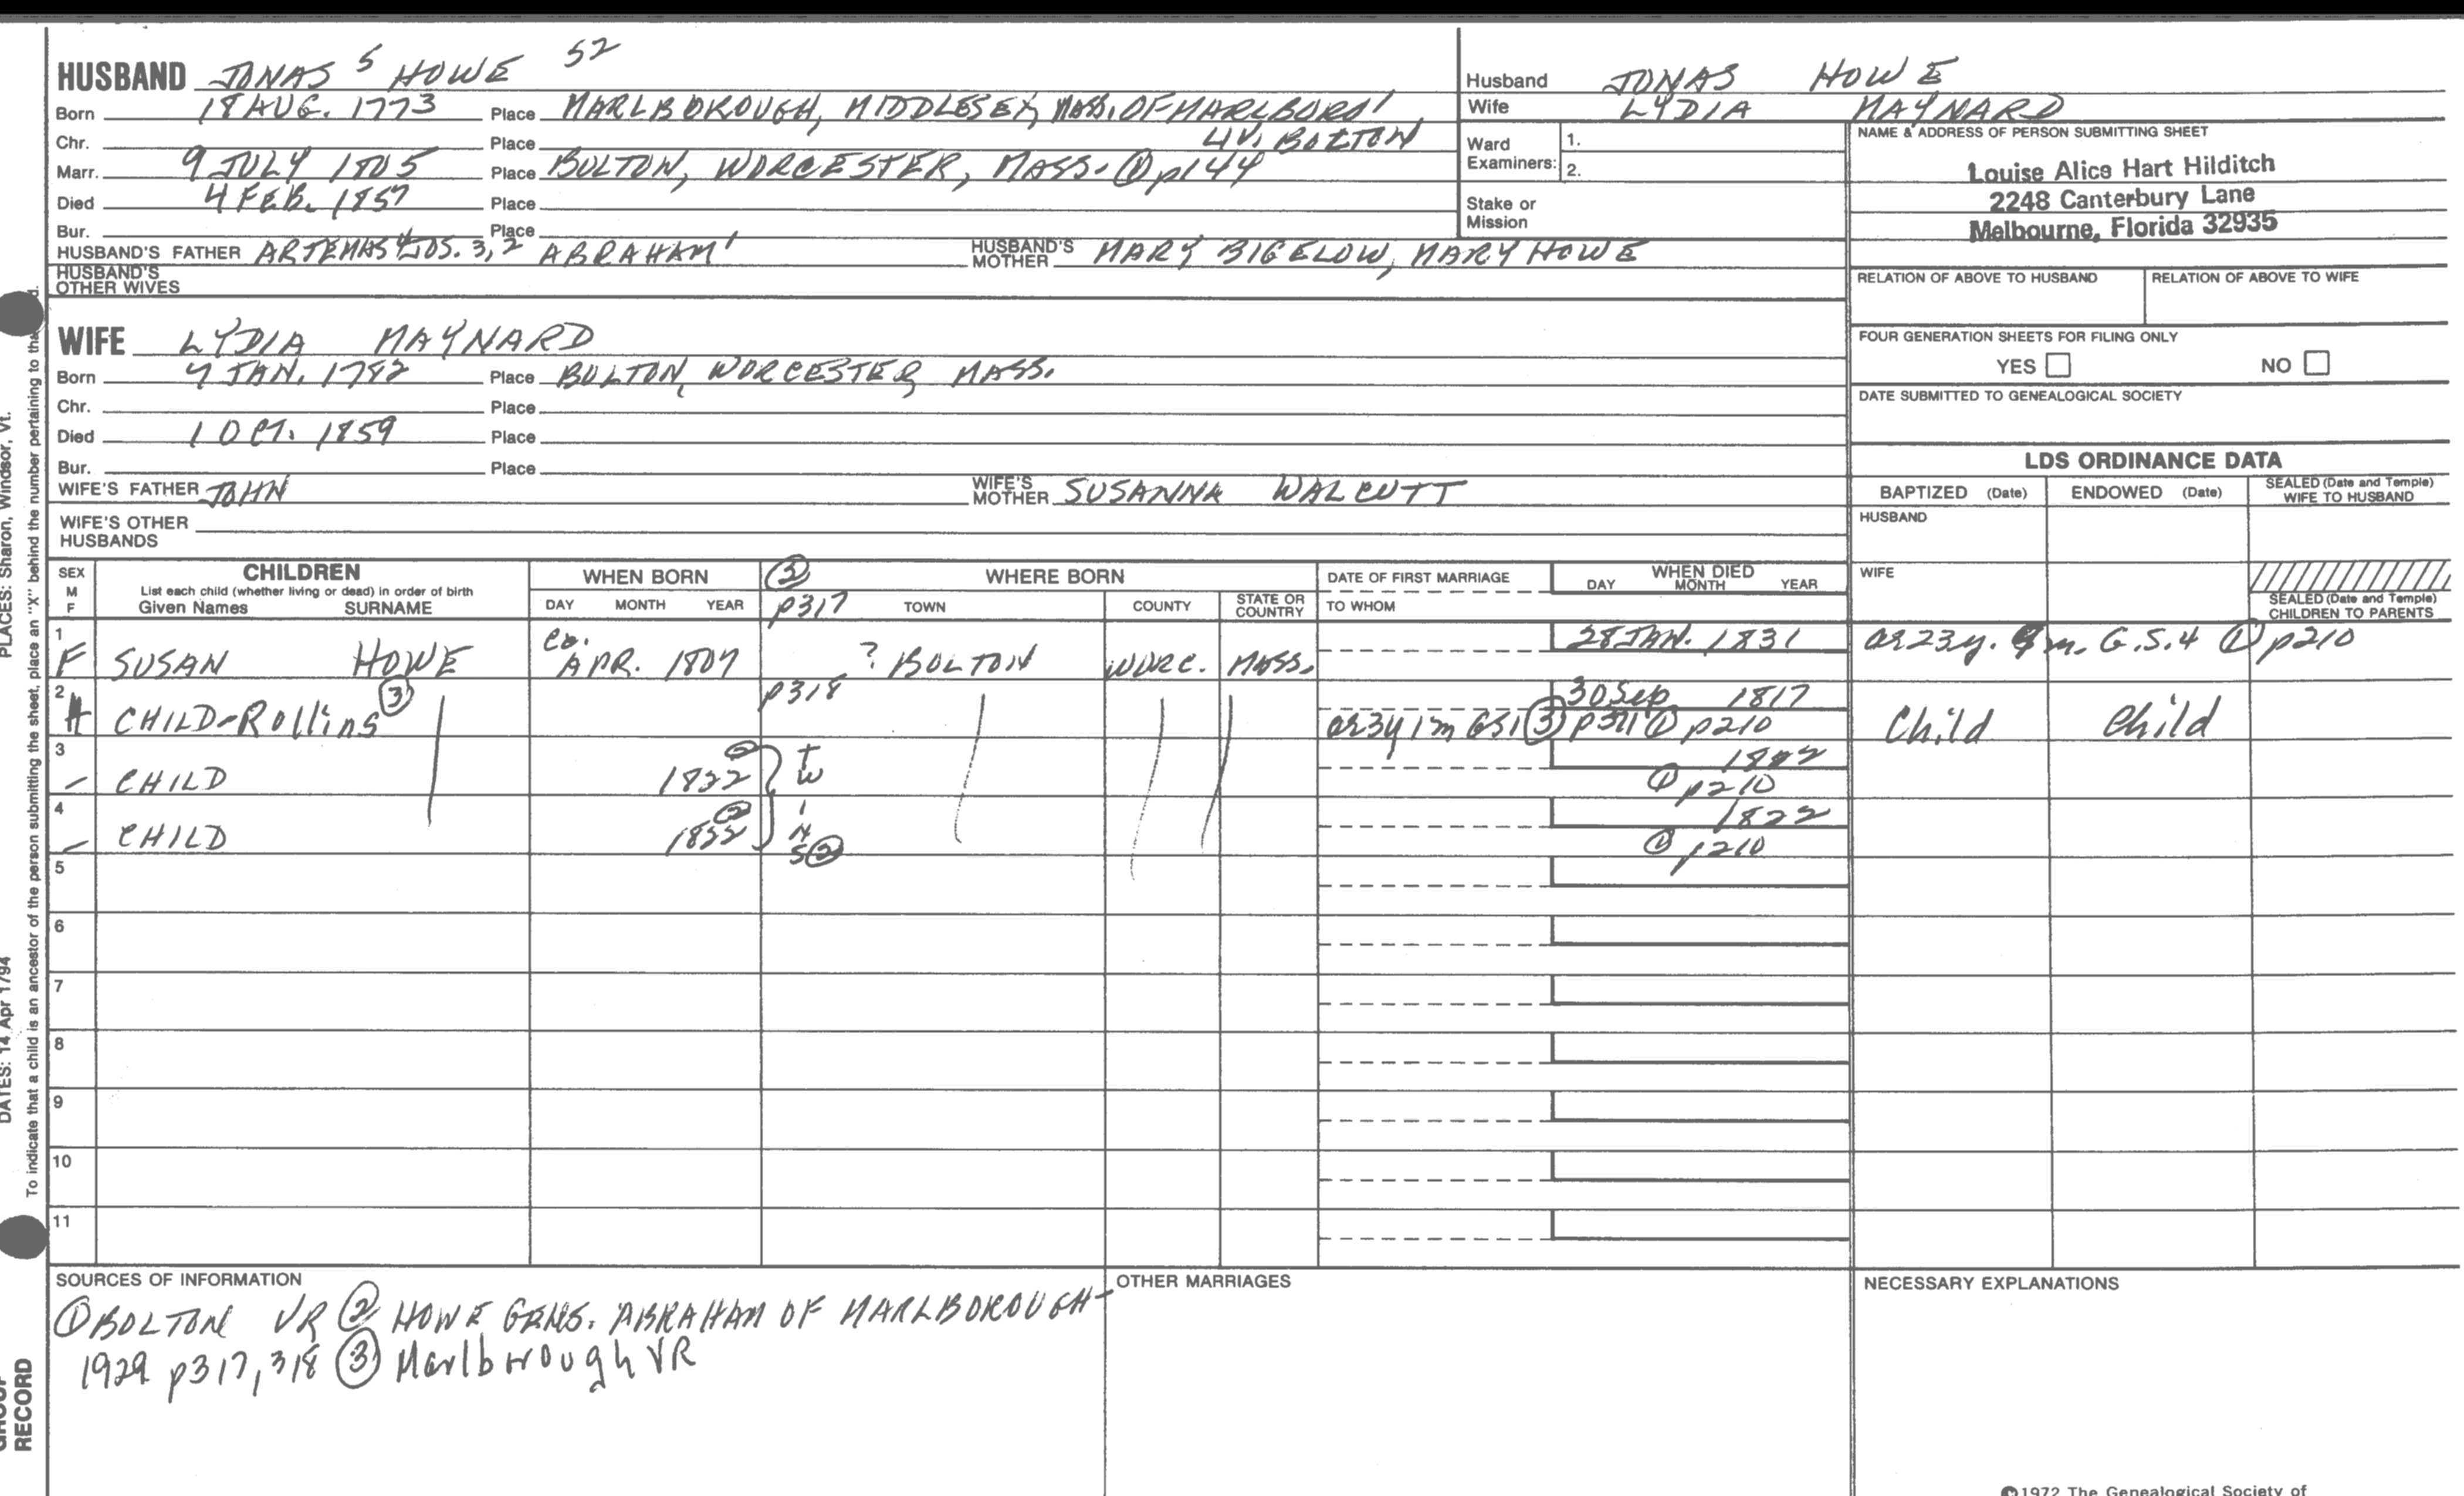 HUSBAND JONAS 5 HOWE 52
Born 18 AUG. 1773 Place MARLBOROUGH, MIDDLESEX, MASS. OF MARLBORO'
Chr. Place LIV. BOLTON
Marr. 9 JULY 1805 Place BOLTON, WORCESTER, MASS. ① p144
Died 4 FEB. 1857 Place
Bur. Place
HUSBAND'S FATHER ARTEMAS 4 JOS. 3, 2 ABRAHAM 1 HUSBAND'S MOTHER MARY BIGELOW, MARY HOWE
HUSBAND'S OTHER WIVES
Husband JONAS HOWE
Wife LYDIA MAYNARD
Ward Examiners: 1.
2.
Stake or Mission
NAME & ADDRESS OF PERSON SUBMITTING SHEET
Louise Alice Hart Hilditch
2248 Canterbury Lane
Melbourne, Florida 32935
RELATION OF ABOVE TO HUSBAND RELATION OF ABOVE TO WIFE
FOUR GENERATION SHEETS FOR FILING ONLY
YES NO
DATE SUBMITTED TO GENEALOGICAL SOCIETY
WIFE LYDIA MAYNARD
Born 7 JAN. 1782 Place BOLTON, WORCESTER, MASS.
Chr. Place
Died 1 OCT. 1859 Place
Bur. Place
WIFE'S FATHER JOHN WIFE'S MOTHER SUSANNA WALCUTT
WIFE'S OTHER HUSBANDS
LDS ORDINANCE DATA
BAPTIZED (Date) ENDOWED (Date) SEALED (Date and Temple) WIFE TO HUSBAND
HUSBAND
WIFE
SEALED (Date and Temple) CHILDREN TO PARENTS
SEX M F CHILDREN List each child (whether living or dead) in order of birth Given Names SURNAME
WHEN BORN DAY MONTH YEAR
② p317 WHERE BORN TOWN COUNTY STATE OR COUNTRY
DATE OF FIRST MARRIAGE TO WHOM
WHEN DIED DAY MONTH YEAR
1 F SUSAN HOWE ca. APR. 1807 ? BOLTON WORC. MASS. 28 JAN. 1831 ae 23y. 9m. G.S.4 ① p210
2 CHILD-Rollins ③ p318 30 Sep 1817 ae 3y 1m GS1 ③ ① p210 Child Child
3 - CHILD 1822 ② TW 1822 ① p210
4 - CHILD 1822 ② INS ② 1822 ① p210
5
6
7
8
9
10
11
SOURCES OF INFORMATION
① BOLTON VR ② HOWE GENS. ABRAHAM OF MARLBOROUGH-
1929 p317, 318 ③ Marlborough VR
OTHER MARRIAGES
NECESSARY EXPLANATIONS
©1972 The Genealogical Society of
PLACES: Sharon, Windsor, Vt.
DATES: 14 Apr 1794
To indicate that a child is an ancestor of the person submitting the sheet, place an "X" behind the number pertaining to
GROUP RECORD